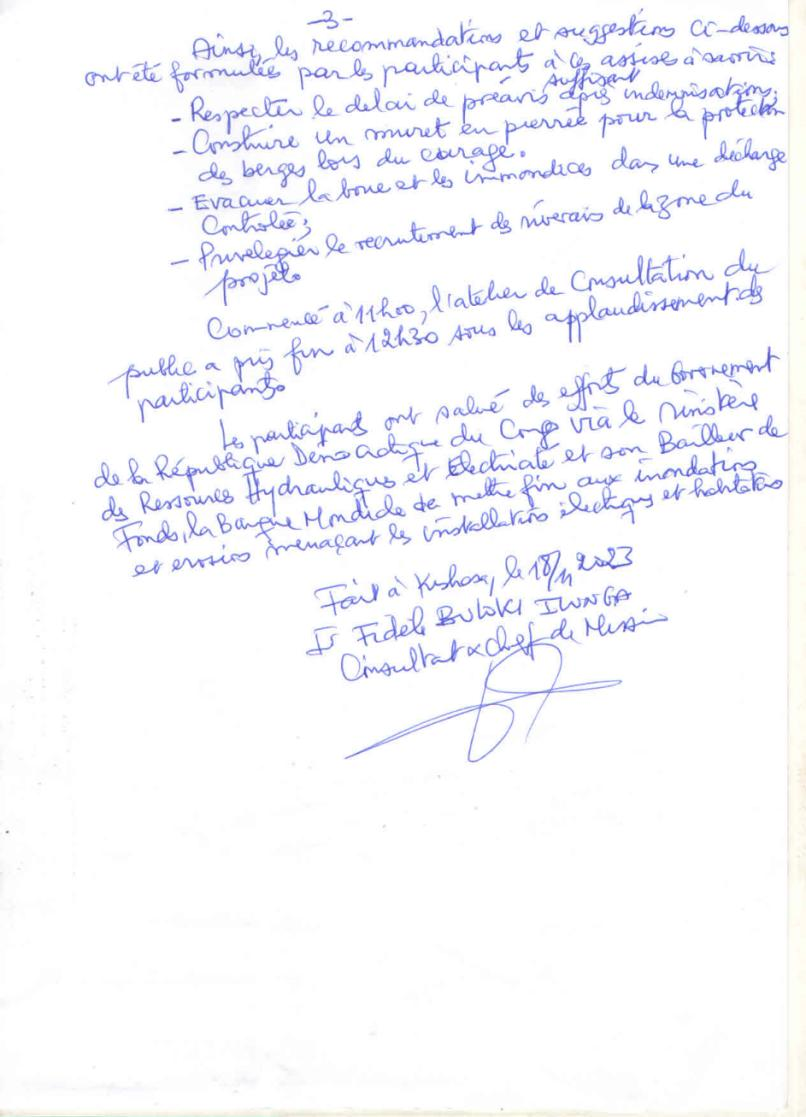 -3-
Ainsi, les recommandations et suggestions ci-dessous
ont été formulées par les participants à ces assises à savoir:
suffisant
- Respecter le delai de préavis après indemnisations;
- Construire un muret en pierrée pour la protection
des berges lors du curage.
- Evacuer la boue et les immondices dans une décharge
Contrôlée;
- Privelegier le recrutement des riverais de la zone du
projet.
Commencé à 11h00, l'atelier de Consultation du
public a pris fin à 12h30 sous les applaudissement des
participants.
Les participants ont salué des efforts du
de la République Démocratique du Congo via le Ministère
des Ressources Hydrauliques et Electricité et son Bailleur de
Fonds, la Banque Mondiale de mettre fin aux inondations
et erosions menaçant les installations électriques et habitations
Fait à Kinshasa, le 18/11/2023
Ir Fidèle BULUKI ILUNGA
Consultant & Chef de Mission